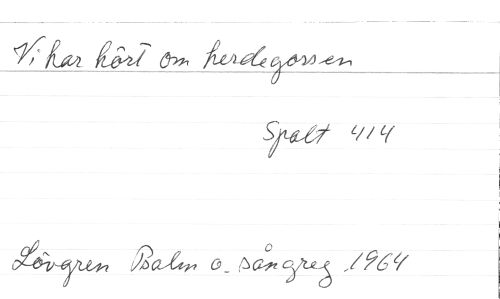 Vi har hört om herdegossen
Spalt 414
Lövgren Psalm o. sångreg 1964